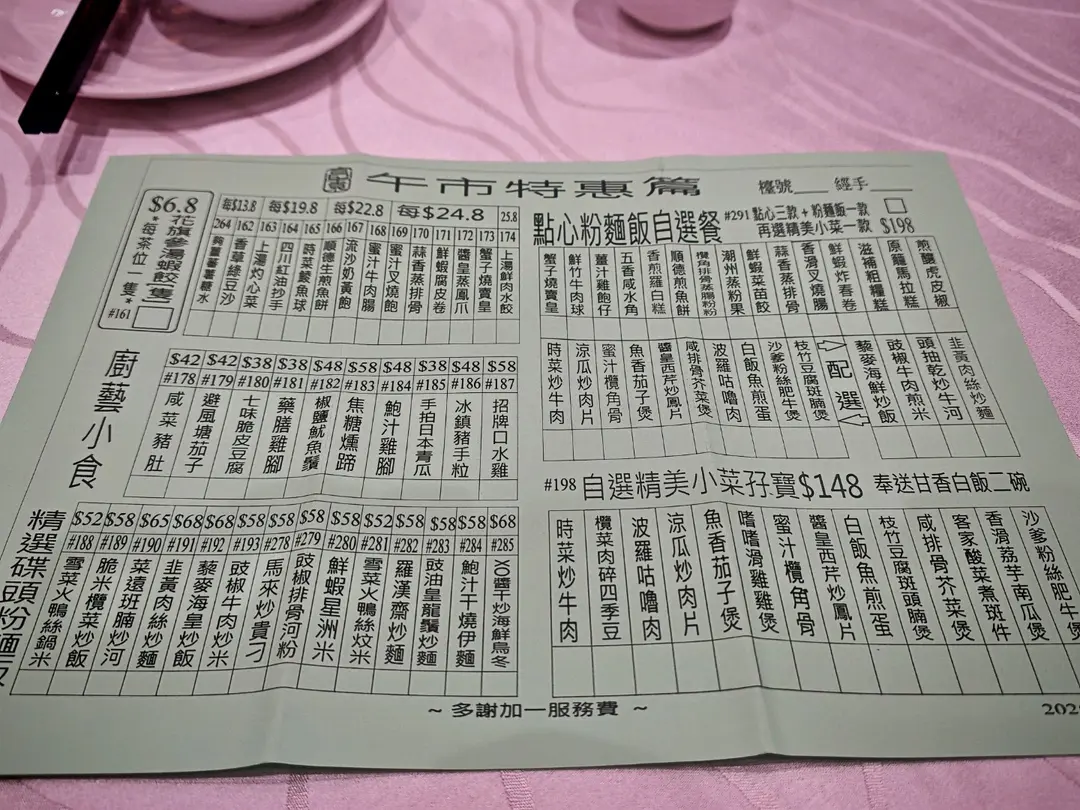 午市特惠篇
檯號____ 經手____
$6.8
花旗參湯蝦餃[隻]
*每茶位一隻*
#161
每$13.8 每$19.8 每$22.8 每$24.8 25.8
264 162 163 164 165 166 167 168 169 170 171 172 173 174
香草綠豆沙
上湯灼心菜
四川紅油抄手
時菜鯪魚球
順德生煎魚餅
流沙奶黃飽
蜜汁牛肉腸
蜜汁叉燒飽
蒜香蒸排骨
鮮蝦腐皮卷
醬皇蒸鳳爪
蟹子燒賣皇
上湯鮮肉水餃
點心粉麵飯自選餐 #291 點心三款+粉麵飯一款
再選精美小菜一款 $198
蟹子燒賣皇
鮮竹牛肉球
薑汁雞飽仔
五香咸水角
香煎蘿白糕
順德煎魚餅
欖角排骨蒸腸粉
潮州蒸粉果
鮮蝦菜苗餃
蒜香蒸排骨
香滑叉燒腸
鮮蝦炸春卷
滋補粗糧糕
原籠馬拉糕
煎釀虎皮椒
時菜炒牛肉
涼瓜炒肉片
蜜汁欖角骨
魚香茄子煲
醬皇西芹炒鳳片
咸排骨芥菜煲
波羅咕嚕肉
白飯魚煎蛋
沙爹粉絲肥牛煲
枝竹豆腐斑腩煲
配選
藜麥海鮮炒飯
豉椒牛肉煎米
頭抽乾炒牛河
韭黃肉絲炒麵
廚藝小食
$42 $42 $38 $38 $48 $58 $48 $38 $48 $58
#178 #179 #180 #181 #182 #183 #184 #185 #186 #187
咸菜豬肚
避風塘茄子
七味脆皮豆腐
藥膳雞腳
椒鹽魷魚鬚
焦糖燻蹄
鮑汁雞腳
手拍日本青瓜
冰鎮豬手粒
招牌口水雞
#198 自選精美小菜孖寶$148 奉送甘香白飯二碗
時菜炒牛肉
欖菜肉碎四季豆
波羅咕嚕肉
涼瓜炒肉片
魚香茄子煲
嗜嗜滑雞雞煲
蜜汁欖角骨
醬皇西芹炒鳳片
白飯魚煎蛋
枝竹豆腐斑頭腩煲
咸排骨芥菜煲
客家酸菜煮斑件
香滑荔芋南瓜煲
沙爹粉絲肥牛煲
精選碟頭粉麵
$52 $58 $65 $68 $68 $58 $58 $58 $58 $52 $58 $58 $58 $68
#188 #189 #190 #191 #192 #193 #278 #279 #280 #281 #282 #283 #284 #285
雪菜火鴨絲鍋米
脆米欖菜炒飯
菜遠斑腩炒河
韭黃肉絲炒麵
藜麥海皇炒飯
豉椒牛肉炒米
馬來炒貴刁
豉椒排骨河粉
鮮蝦星洲米
雪菜火鴨絲炆米
羅漢齋炒麵
豉油皇龍鬚炒麵
鮑汁干燒伊麵
XO醬干炒海鮮烏冬
~ 多謝加一服務費 ~